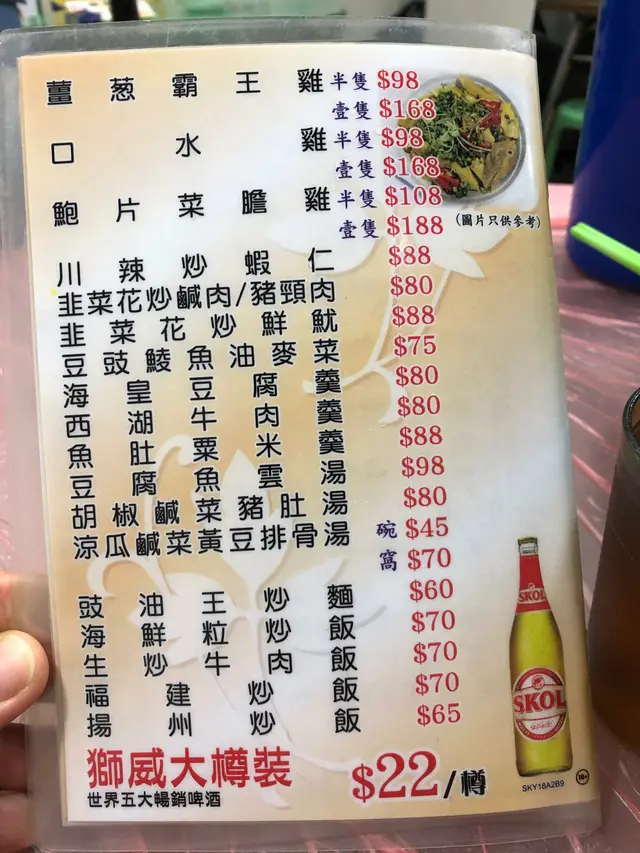 薑葱霸王雞 半隻 $98
壹隻 $168
口水雞 半隻 $98
壹隻 $168
鮑片菜膽雞 半隻 $108
壹隻 $188 (圖片只供參考)
川辣炒蝦仁 $88
韭菜花炒鹹肉/豬頸肉 $80
韭菜花炒鮮魷 $88
豆豉鯪魚油麥菜 $75
海皇豆腐羹 $80
西湖牛肉羹 $80
魚肚粟米羹 $88
豆腐魚雲湯 $98
胡椒鹹菜豬肚湯 $80
涼瓜鹹菜黃豆排骨湯 碗 $45
窩 $70
豉油王炒麵 $60
海鮮粒炒飯 $70
生炒牛肉飯 $70
福建炒飯 $70
揚州炒飯 $65
獅威大樽裝 $22/樽
世界五大暢銷啤酒
SKOL
SKOL
SKY18A2B9
18+